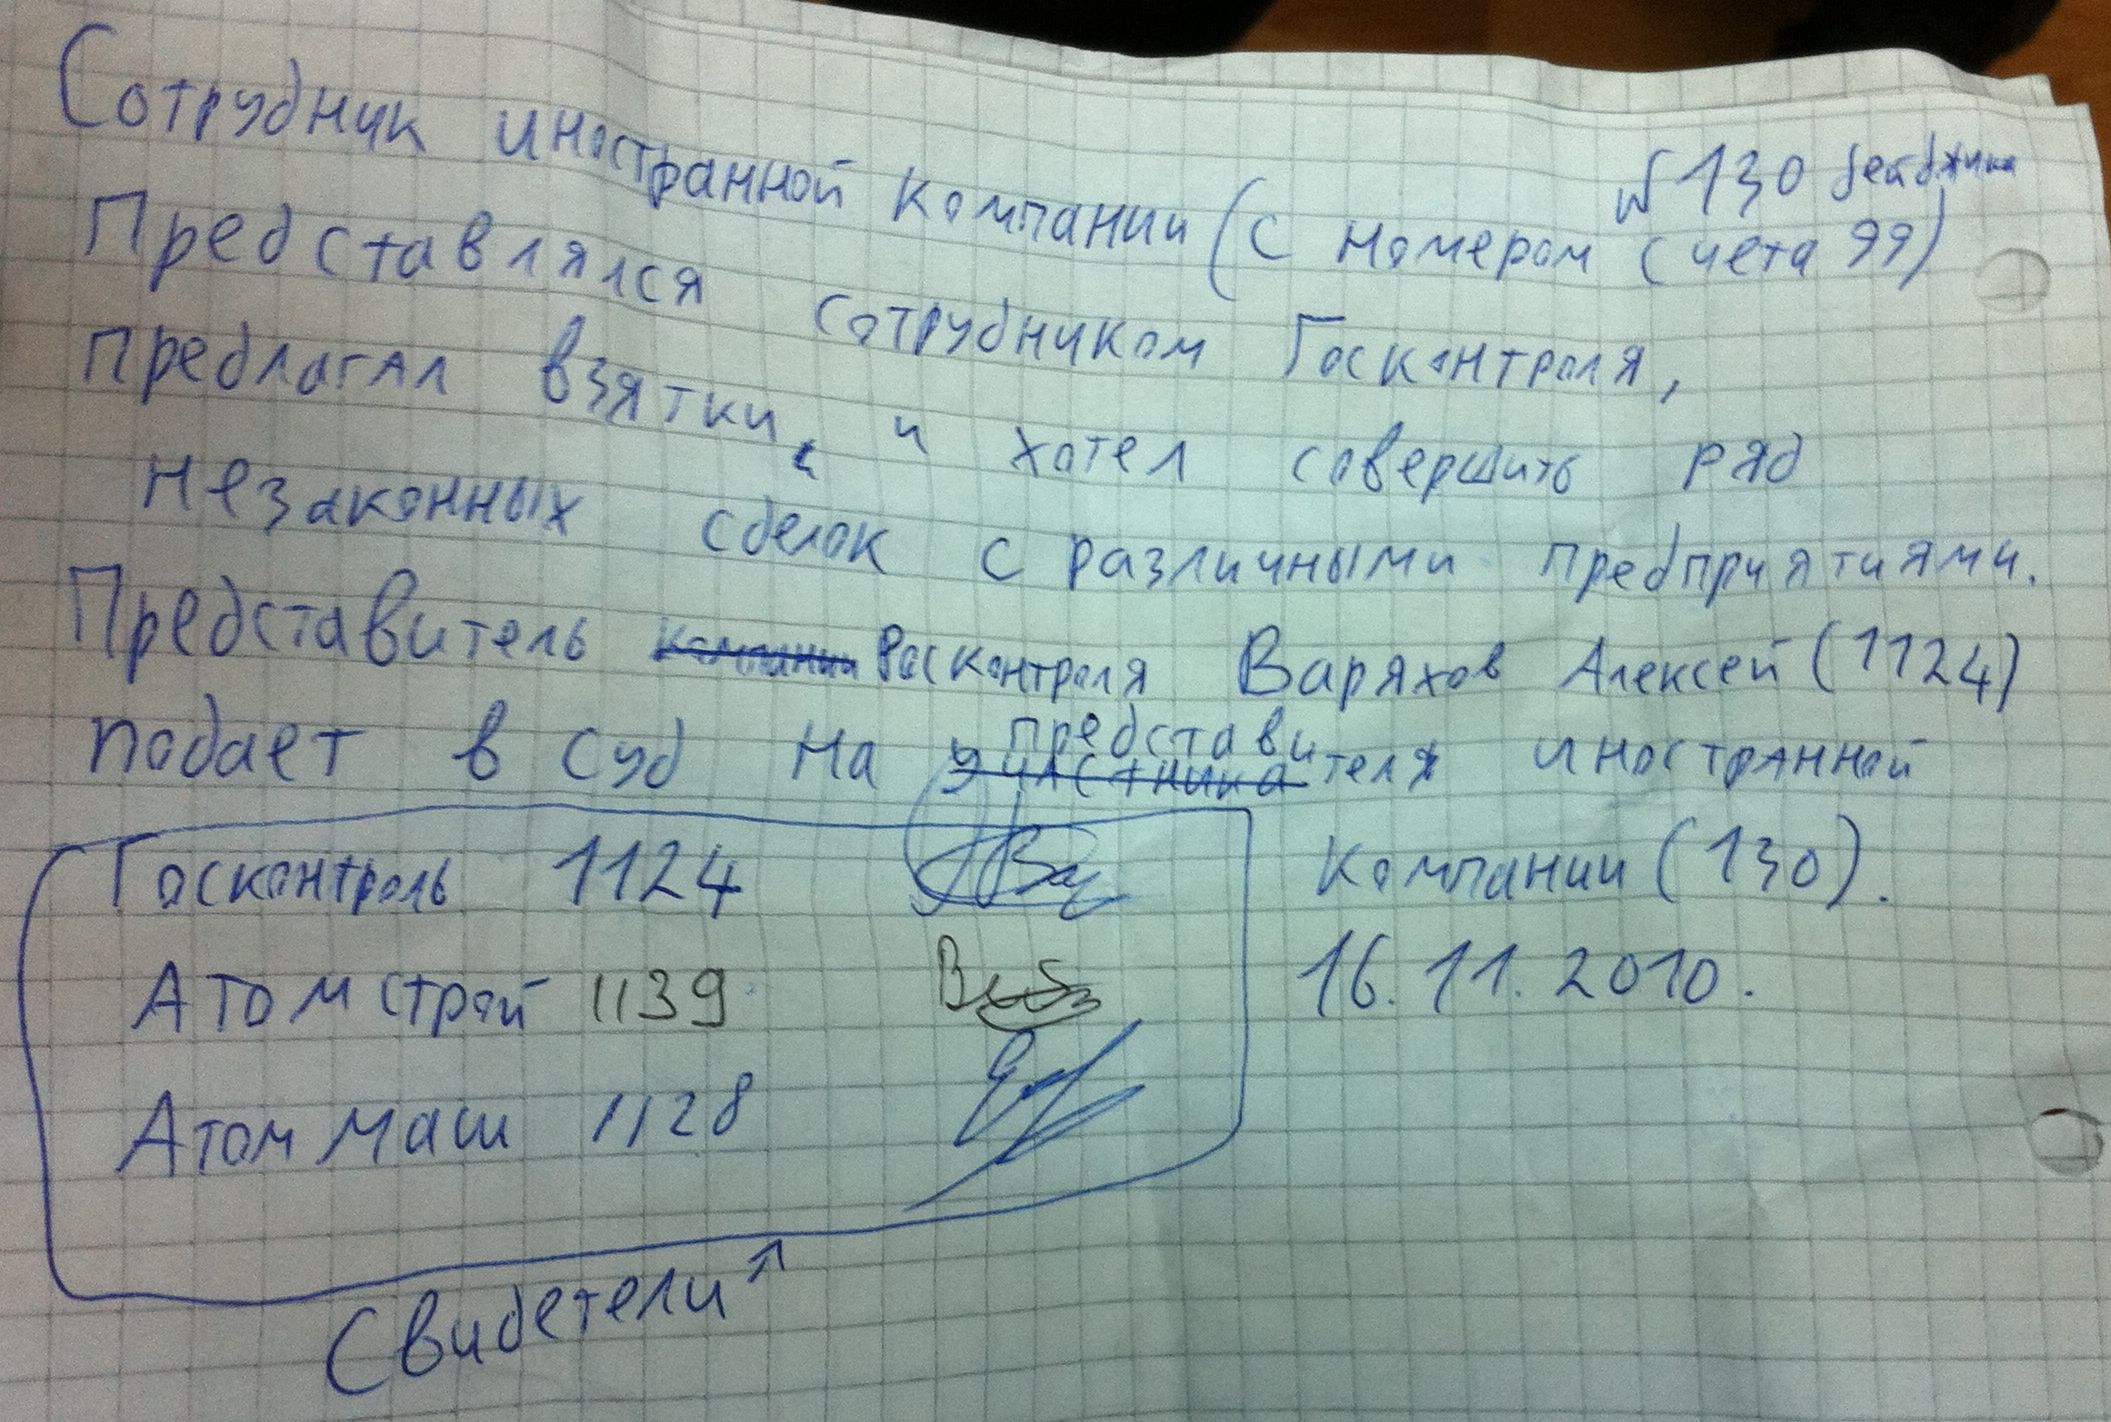 Сотрудник иностранной компании (с номером счета 99)
№ 130 бейджика
Представлялся сотрудником Госконтроля,
предлагал взятки, и хотел совершить ряд
незаконных сделок с различными предприятиями.
Представитель компании Росконтроля Варяхов Алексей (1124)
подает в суд на участника представителя иностранной
компании (130).
16.11.2010.
Госконтроль 1124
Атомстрой 1139
Атоммаш 1128
Свидетели ↗